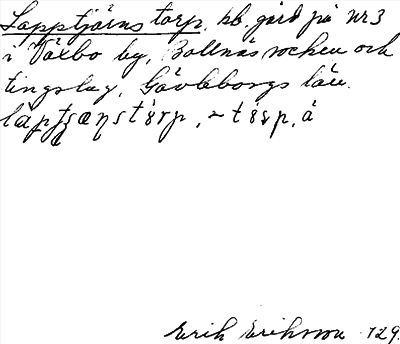 Lapptjärns torp, hb. gård på nr 3
i Växbo by, Bollnäs socken och
tingslag, Gävleborgs län.
Erik Eriksson 1729